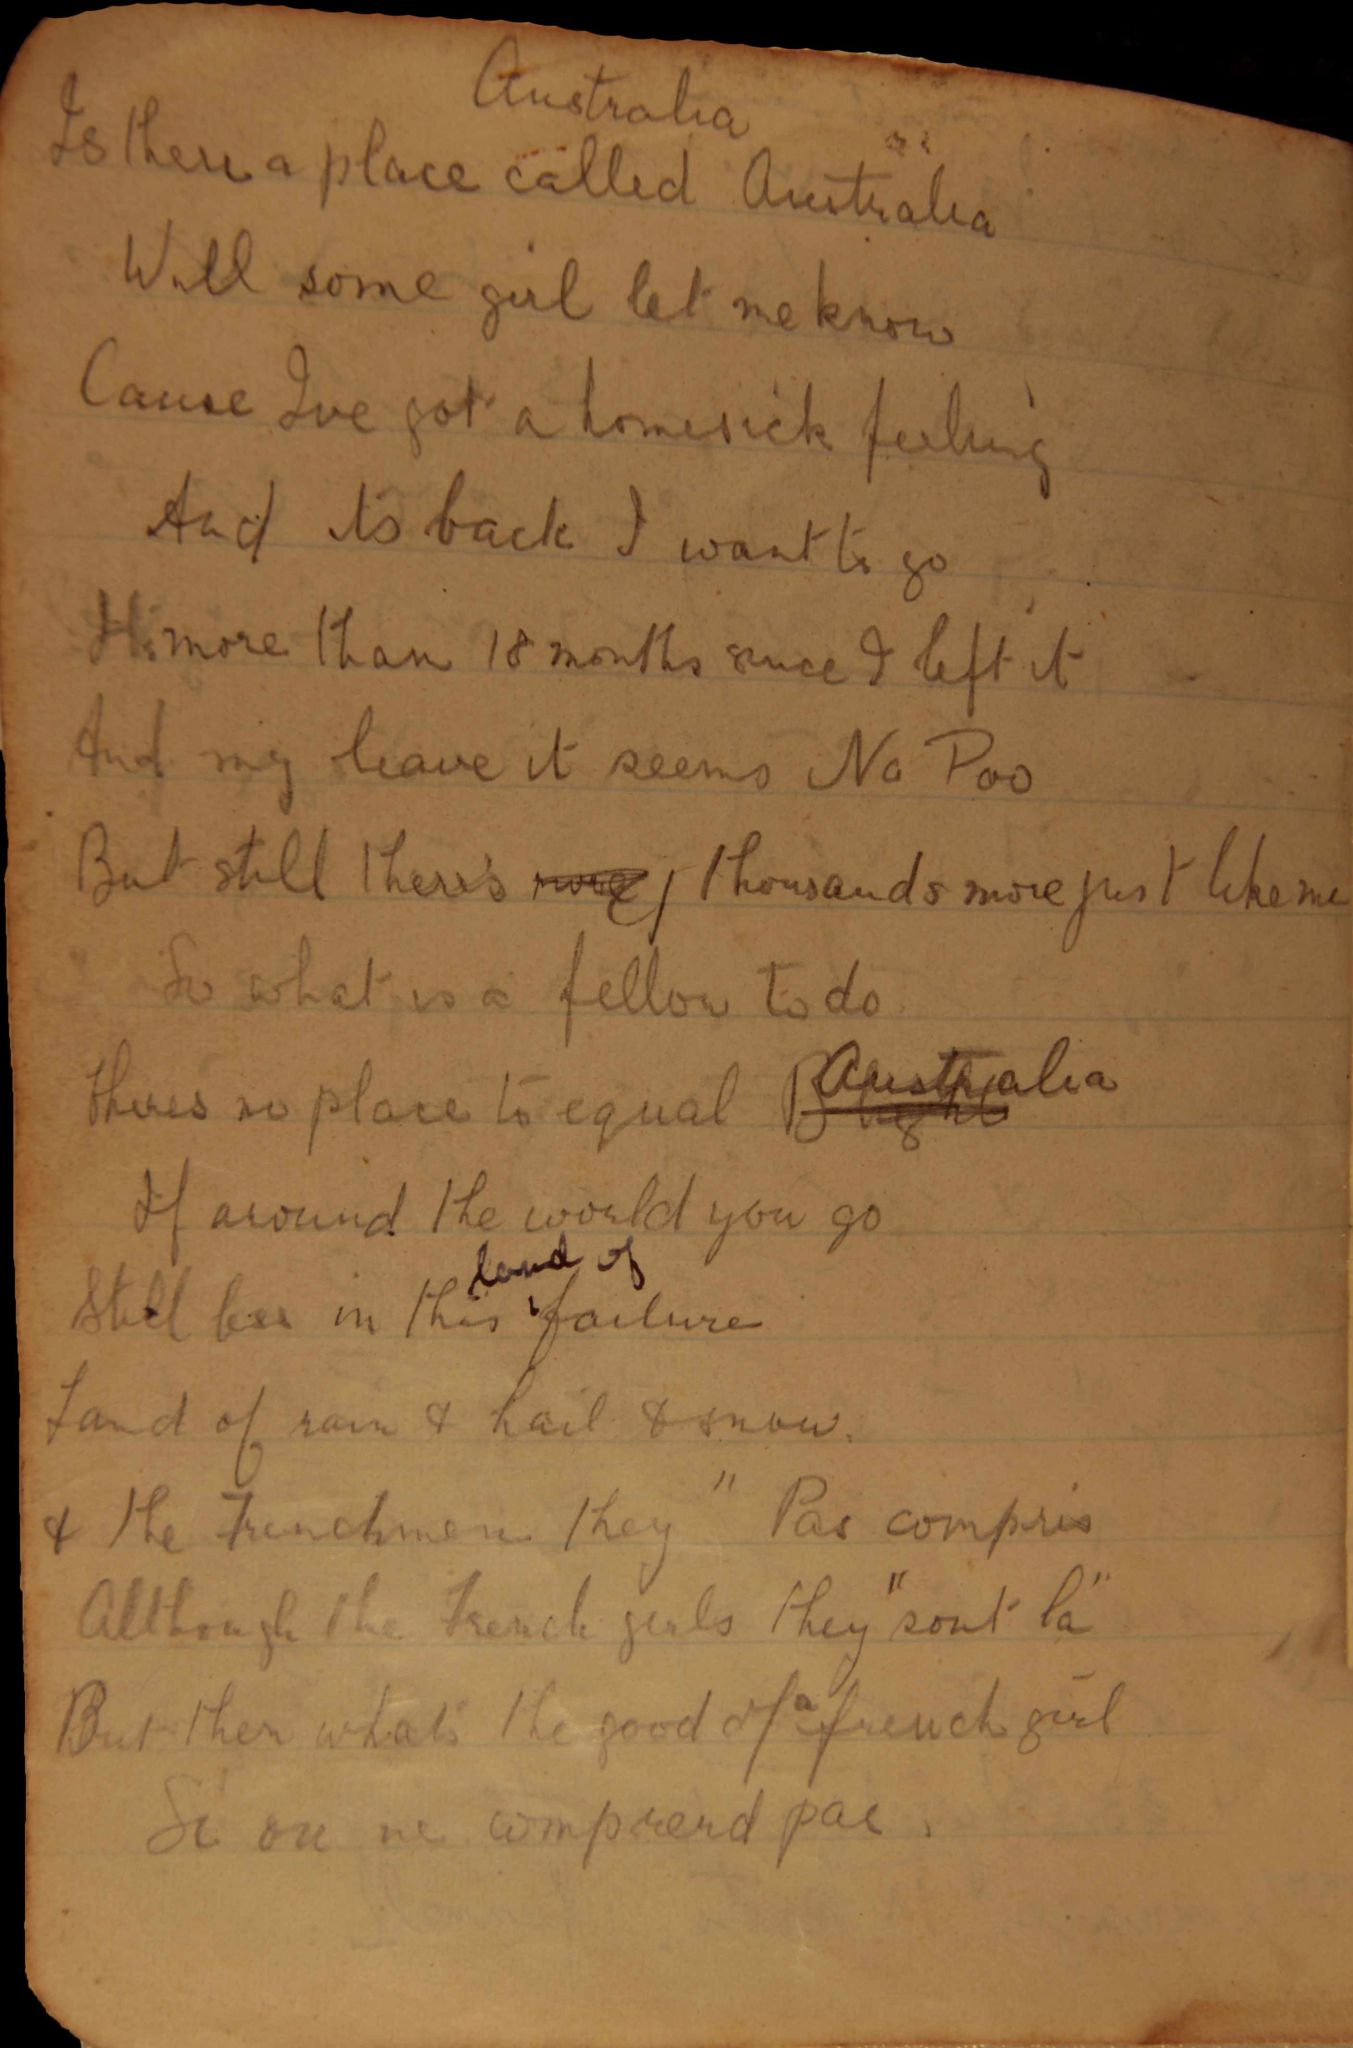 Australia
Is there a place called Australia
Will some girl let me know
Cause Ive got a homesick feeling
And its back I want to go
Its more than 18 months since I left it
And my leave it seems Na Poo
But still there's thousands more just like me
So what is a fellow to do
theres no place to equal Blighty Australia
If around the world you go
land of
Still in this failure
Land of rain & hail & snow.
& the Frenchmen they " Pas compris
Although the French girls they "sont la"
But then whats the good of a french girl
Si on ne comprend pas.